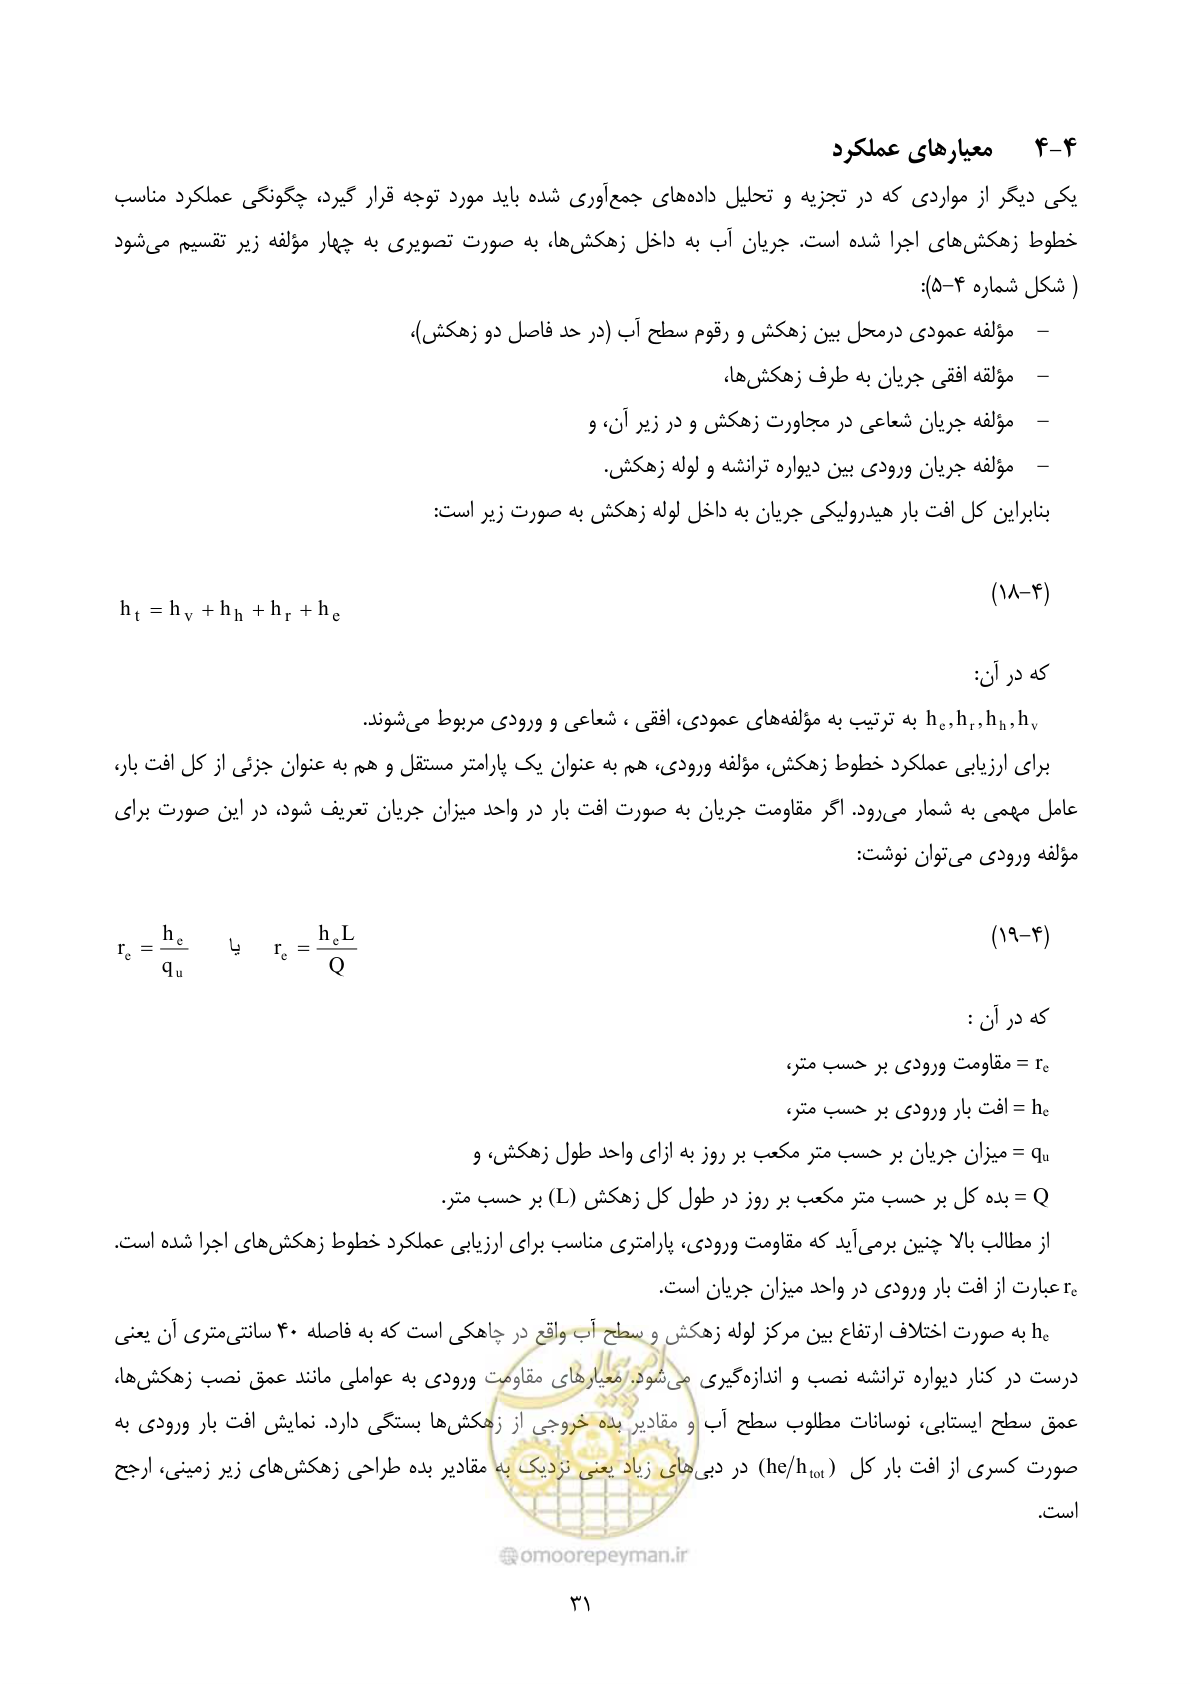 ۴-۴ معیارهای عملکرد
یکی دیگر از مواردی که در تجزیه و تحلیل داده‌های جمع‌آوری شده باید مورد توجه قرار گیرد، چگونگی عملکرد مناسب
خطوط زهکش‌های اجرا شده است. جریان آب به داخل زهکش‌ها، به صورت تصویری به چهار مؤلفه زیر تقسیم می‌شود
( شکل شماره ۴-۵):
– مؤلفه عمودی درمحل بین زهکش و رقوم سطح آب (در حد فاصل دو زهکش)،
– مؤلقه افقی جریان به طرف زهکش‌ها،
– مؤلفه جریان شعاعی در مجاورت زهکش و در زیر آن، و
– مؤلفه جریان ورودی بین دیواره ترانشه و لوله زهکش.
بنابراین کل افت بار هیدرولیکی جریان به داخل لوله زهکش به صورت زیر است:
(۴-۱۸)
h t = h v + h h + h r + h e
که در آن:
h e , h r , h h , h v به ترتیب به مؤلفه‌های عمودی، افقی ، شعاعی و ورودی مربوط می‌شوند.
برای ارزیابی عملکرد خطوط زهکش، مؤلفه ورودی، هم به عنوان یک پارامتر مستقل و هم به عنوان جزئی از کل افت بار،
عامل مهمی به شمار می‌رود. اگر مقاومت جریان به صورت افت بار در واحد میزان جریان تعریف شود، در این صورت برای
مؤلفه ورودی می‌توان نوشت:
(۴-۱۹)
r e = h e / q u یا r e = h e L / Q
که در آن :
r e = مقاومت ورودی بر حسب متر،
h e = افت بار ورودی بر حسب متر،
q u = میزان جریان بر حسب متر مکعب بر روز به ازای واحد طول زهکش، و
Q = بده کل بر حسب متر مکعب بر روز در طول کل زهکش (L) بر حسب متر.
از مطالب بالا چنین برمی‌آید که مقاومت ورودی، پارامتری مناسب برای ارزیابی عملکرد خطوط زهکش‌های اجرا شده است.
r e عبارت از افت بار ورودی در واحد میزان جریان است.
h e به صورت اختلاف ارتفاع بین مرکز لوله زهکش و سطح آب واقع در چاهکی است که به فاصله ۴۰ سانتی‌متری آن یعنی
درست در کنار دیواره ترانشه نصب و اندازه‌گیری می‌شود. معیارهای مقاومت ورودی به عواملی مانند عمق نصب زهکش‌ها،
عمق سطح ایستابی، نوسانات مطلوب سطح آب و مقادیر بده خروجی از زهکش‌ها بستگی دارد. نمایش افت بار ورودی به
صورت کسری از افت بار کل (he/h tot) در دبی‌های زیاد یعنی نزدیک به مقادیر بده طراحی زهکش‌های زیر زمینی، ارجح
است.
امور پیمان
@omoorepeyman.ir
۳۱